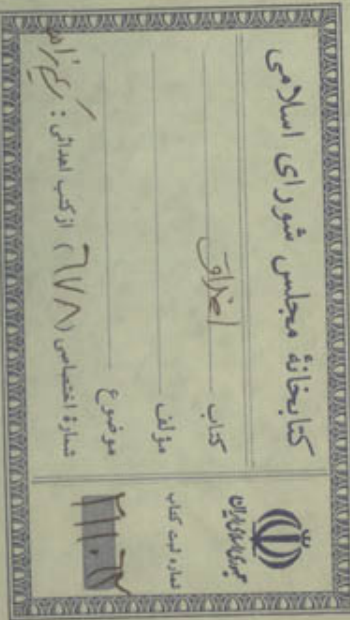 کتابخانهٔ مجلس شورای اسلامی
کتاب اخلاق
مؤلف
موضوع
شمارهٔ اختصاصی (٦٧٨) از کتب اهدائی:
جمهوری اسلامی ایران
شماره ثبت کتاب